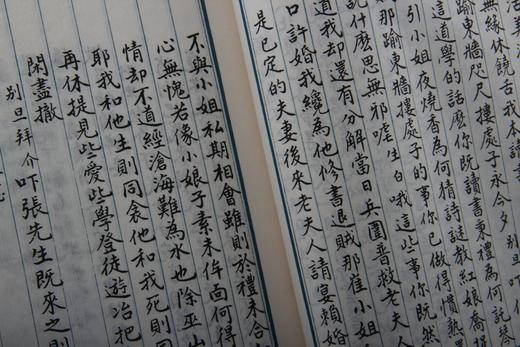 踰東牆咫尺樓處子永今夕 別旦吓
這道學的話麼你既讀書東禮為何託琴
引小姐夜燒香為何猜詩謎教紅娘喬
那踰東牆樓處子的事你已做得慣熟
說什麽思無邪嗟生白哦這些事你既然
道我却還有分解當日兵圍普救老夫人
口許婚我纔為他修書退賊那崔小姐
是已定的夫妻後來老夫人請宴賴婚
不與小姐私期相會雖則於禮未合
心無愧若像小娘子素未侔面何得
情却不道經滄海難為水也除巫山
耶我和他生則同衾他和我死則同
再休提見些愛些學登徒遊冶把
閑盡撤
別旦拜介吓張先生既來之則